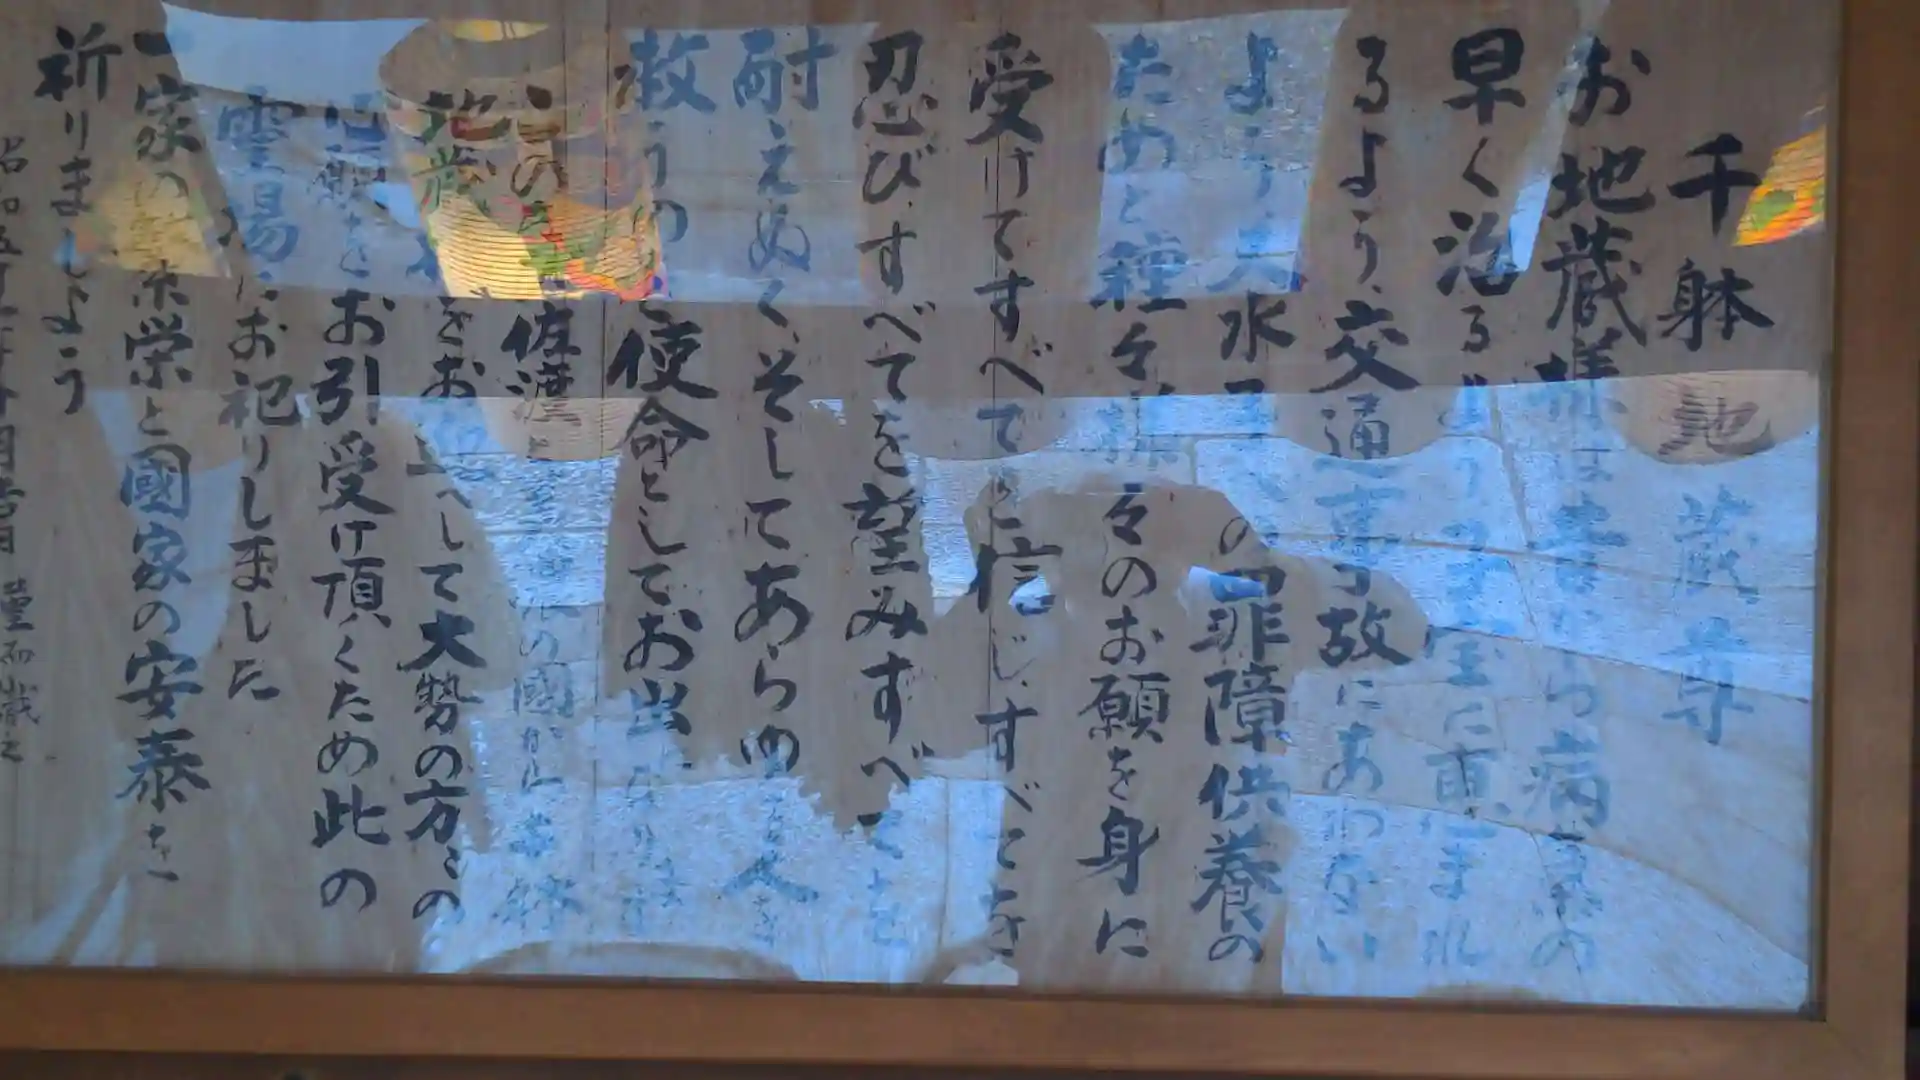 千躰地蔵尊
お地蔵様は昔から病気の
早く治るよう子宝に恵まれ
るよう、交通事故にあわない
よう、水子の罪障供養の
ためと種々様々のお願を身に
受けてすべてを信じ、すべてを
忍び、すべてを望みすべてを
耐えぬく、そしてあらゆる人を
救うのを使命としてお出
この 佐渡 の國から
地蔵 をお して大勢の方々の
心願をお引受け頂くため此の
霊場にお祀りしました
一家の 栄と國家の安泰を
祈りましょう
昭和五 月吉日